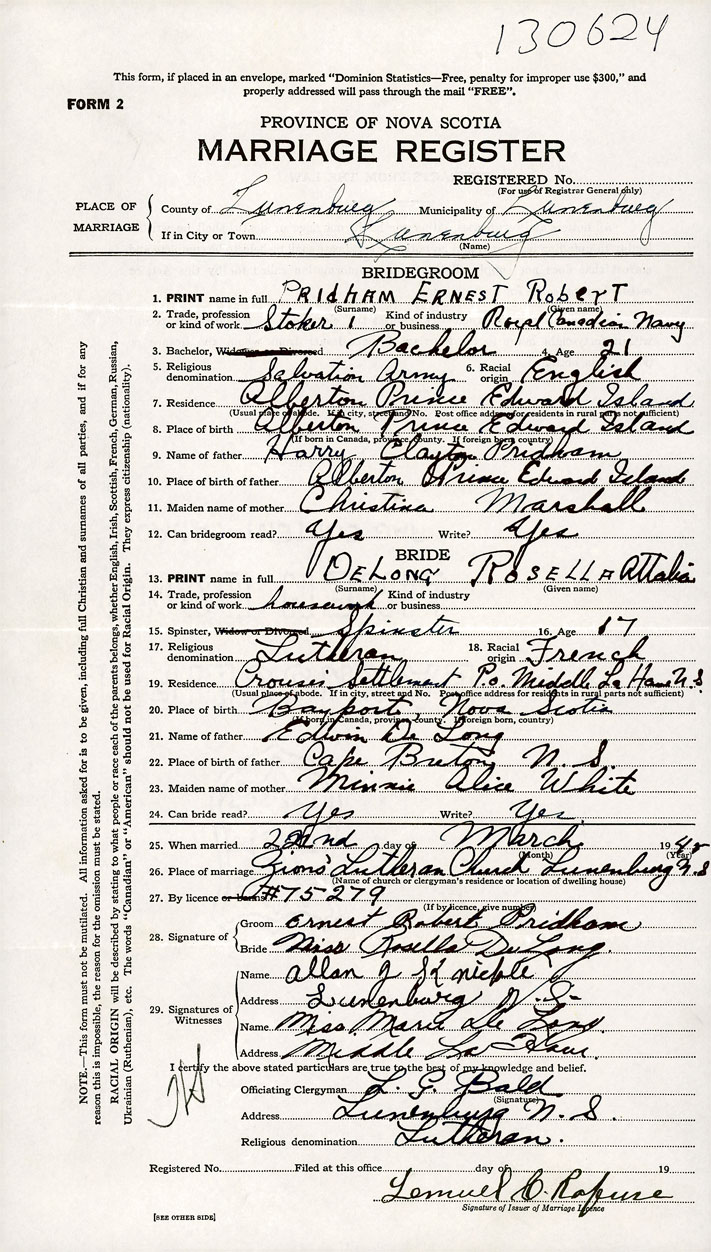 130624
This form, if placed in an envelope, marked “Dominion Statistics—Free, penalty for improper use $300,” and
properly addressed will pass through the mail “FREE”.
FORM 2
PROVINCE OF NOVA SCOTIA
MARRIAGE REGISTER
REGISTERED No.
(For use of Registrar General only)
PLACE OF MARRIAGE
County of Lunenburg Municipality of Lunenburg
If in City or Town Lunenburg
(Name)
BRIDEGROOM
1. PRINT name in full PRIDHAM ERNEST ROBERT
(Surname) (Given name)
2. Trade, profession or kind of work Stoker 1 Kind of industry or business. Royal Canadian Navy
3. Bachelor, Widower or Divorced Bachelor 4. Age 21
5. Religious denomination Salvation Army 6. Racial origin English
7. Residence Alberton Prince Edward Island
(Usual place of abode. If in city, street and No. Post office address for residents in rural parts not sufficient)
8. Place of birth Alberton Prince Edward Island
(If born in Canada, province, county. If foreign born, country)
9. Name of father Harry Clayton Pridham
10. Place of birth of father Alberton Prince Edward Island
11. Maiden name of mother Christina Marshall
12. Can bridegroom read? Yes Write? Yes
BRIDE
13. PRINT name in full DELONG ROSELLA Attalia
(Surname) (Given name)
14. Trade, profession or kind of work housework Kind of industry or business
15. Spinster, Widow or Divorced Spinster 16. Age 17
17. Religious denomination Lutheran 18. Racial origin French
19. Residence Crousis Settlement P.o. Middle La Have N.S
(Usual place of abode. If in city, street and No. Post office address for residents in rural parts not sufficient)
20. Place of birth Bayport, Nova Scotia
(If born in Canada, province, county. If foreign born, country)
21. Name of father Edwin De Long
22. Place of birth of father Cape Breton N. S.
23. Maiden name of mother Minnie Alice White
24. Can bride read? Yes Write? Yes
25. When married 22nd day of March 19
(Month) (Year)
26. Place of marriage Zion's Lutheran Church Lunenburg N.S
(Name of church or clergyman's residence or location of dwelling house)
27. By licence or banns #75279
(If by licence, give number)
28. Signature of
Groom Ernest Robert Pridham
Bride Miss Rosella De Long.
29. Signatures of Witnesses
Name Allan J
Address Lunenburg N. S.
Name Miss Marie De Long.
Address Middle La Have.
I certify the above stated particulars are true to the best of my knowledge and belief.
Officiating Clergyman L. G. Bald
(Signature)
Address Lunenburg N. S.
Religious denomination Lutheran.
Registered No. Filed at this office day of 19
Lemuel C. Rafuse
Signature of Issuer of Marriage Licence
[SEE OTHER SIDE]
NOTE.—This form must not be mutilated. All information asked for is to be given, including full Christian and surnames of all parties, and if for any
reason this is impossible, the reason for the omission must be stated.
RACIAL ORIGIN will be described by stating to what people or race each of the parents belongs, whether English, Irish, Scottish, French, German, Russian,
Ukrainian (Ruthenian), etc. The words “Canadian” or “American” should not be used for Racial Origin. They express citizenship (nationality).